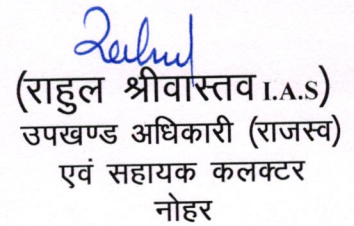 (राहुल श्रीवास्तव I.A.S)
उपखण्ड अधिकारी (राजस्व)
एवं सहायक कलक्टर
नोहर